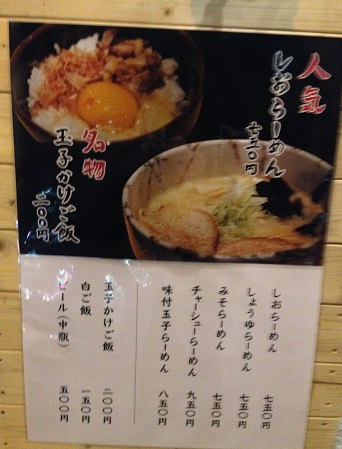 人気
しおらーめん
七五〇円
名物
玉子かけご飯
二〇〇円
しおらーめん 七五〇円
しょうゆらーめん 七五〇円
みそらーめん 七五〇円
チャーシューらーめん 九五〇円
味付玉子らーめん 八五〇円
玉子かけご飯 二〇〇円
白ご飯 一五〇円
ビール(中瓶) 五〇〇円